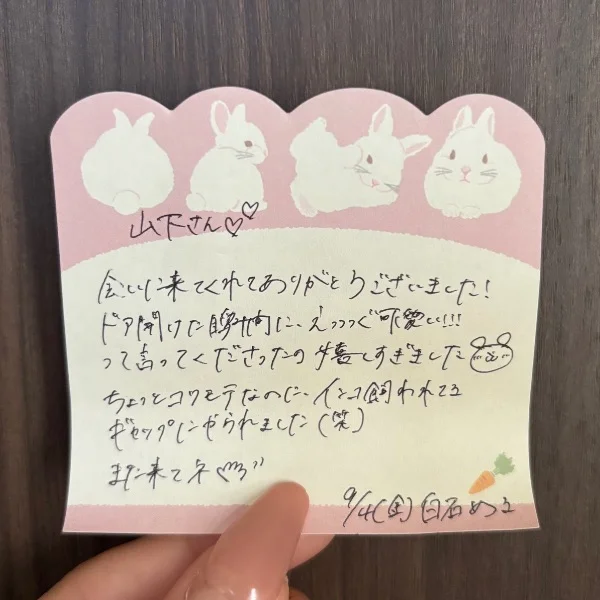 山下さん♡♡
会いに来てくれてありがとうございました!
ドア開けた瞬間に、えっっっぐ可愛い!!!
って言ってくださったの嬉しすぎました
ちょっとコワモテなのに、インコ飼われてる
ギャップにやられました(笑)
また来てネ♡
9/4(金) 白石める